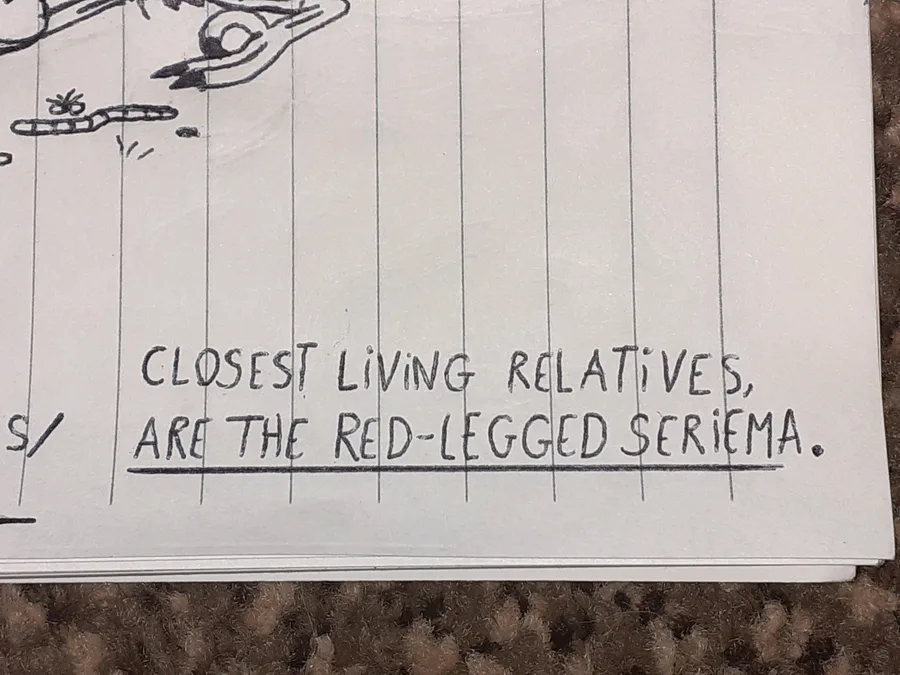 CLOSEST LiViNG RELATiVES,
S/ ARE THE RED-LEGGED SERiEMA.